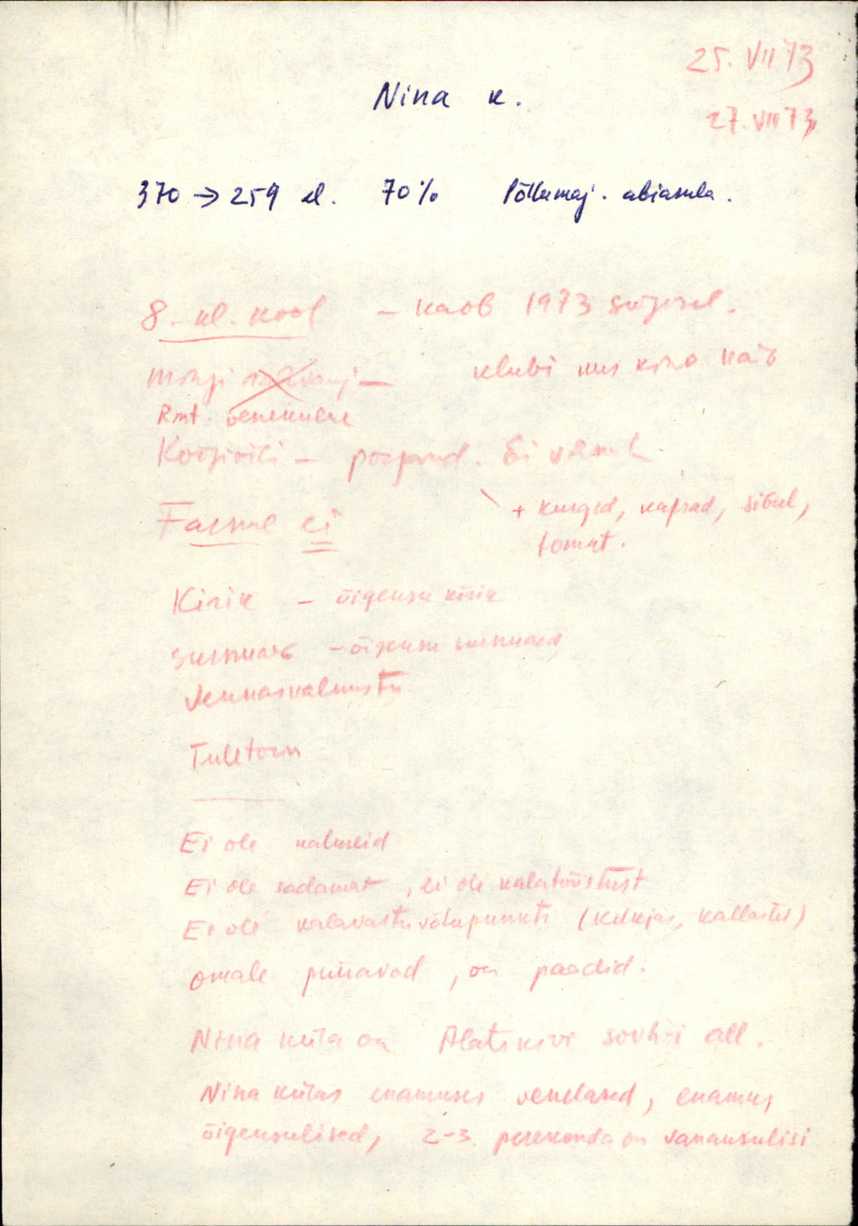 25. VII 73
Nina k.
27. VII 73
370 → 259 el. 70% Põllumaj. abiasula.
8.-kl. kool – kaob 1973 sügisel.
klubi kus kino näit
Rmt. venekeelne
Ei
+ kurgid, kaprad, sibul,
tomat.
ei
Kirik – õigeusu kirik
surnuaed – õigeusu surnuaed
Vennaskalmistu
Tuletorn
Ei ole kalureid
Ei ole sadamat, ei ole kalatööstust
Ei ole kalavastuvõtupunkti (Kolkjas, Kallastel)
omale püüavad, on paadid.
Nina küla on Alatskivi sovhoosi all.
Nina külas enamuses venelased, enamus
õigeusulised, 2-3 perekonda on vanausulisi